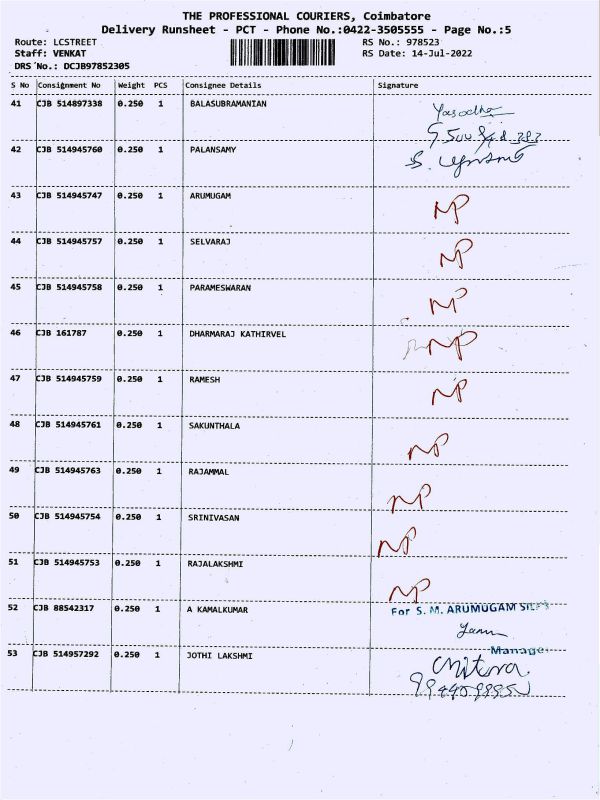 THE PROFESSIONAL COURIERS, Coimbatore
Delivery Runsheet - PCT - Phone No.:0422-3505555 - Page No.:5
Route: LCSTREET RS No.: 978523
Staff: VENKAT RS Date: 14-Jul-2022
DRS No.: DCJB97852305
S No Consignment No Weight PCS Consignee Details Signature
41 CJB 514897338 0.250 1 BALASUBRAMANIAN Yasodha
42 CJB 514945760 0.250 1 PALANSAMY
43 CJB 514945747 0.250 1 ARUMUGAM NP
44 CJB 514945757 0.250 1 SELVARAJ NP
45 CJB 514945758 0.250 1 PARAMESWARAN NP
46 CJB 161787 0.250 1 DHARMARAJ KATHIRVEL NP
47 CJB 514945759 0.250 1 RAMESH NP
48 CJB 514945761 0.250 1 SAKUNTHALA NP
49 CJB 514945763 0.250 1 RAJAMMAL NP
50 CJB 514945754 0.250 1 SRINIVASAN NP
51 CJB 514945753 0.250 1 RAJALAKSHMI NP
52 CJB 88542317 0.250 1 A KAMALKUMAR For S. M. ARUMUGAM
Manager
53 CJB 514957292 0.250 1 JOTHI LAKSHMI